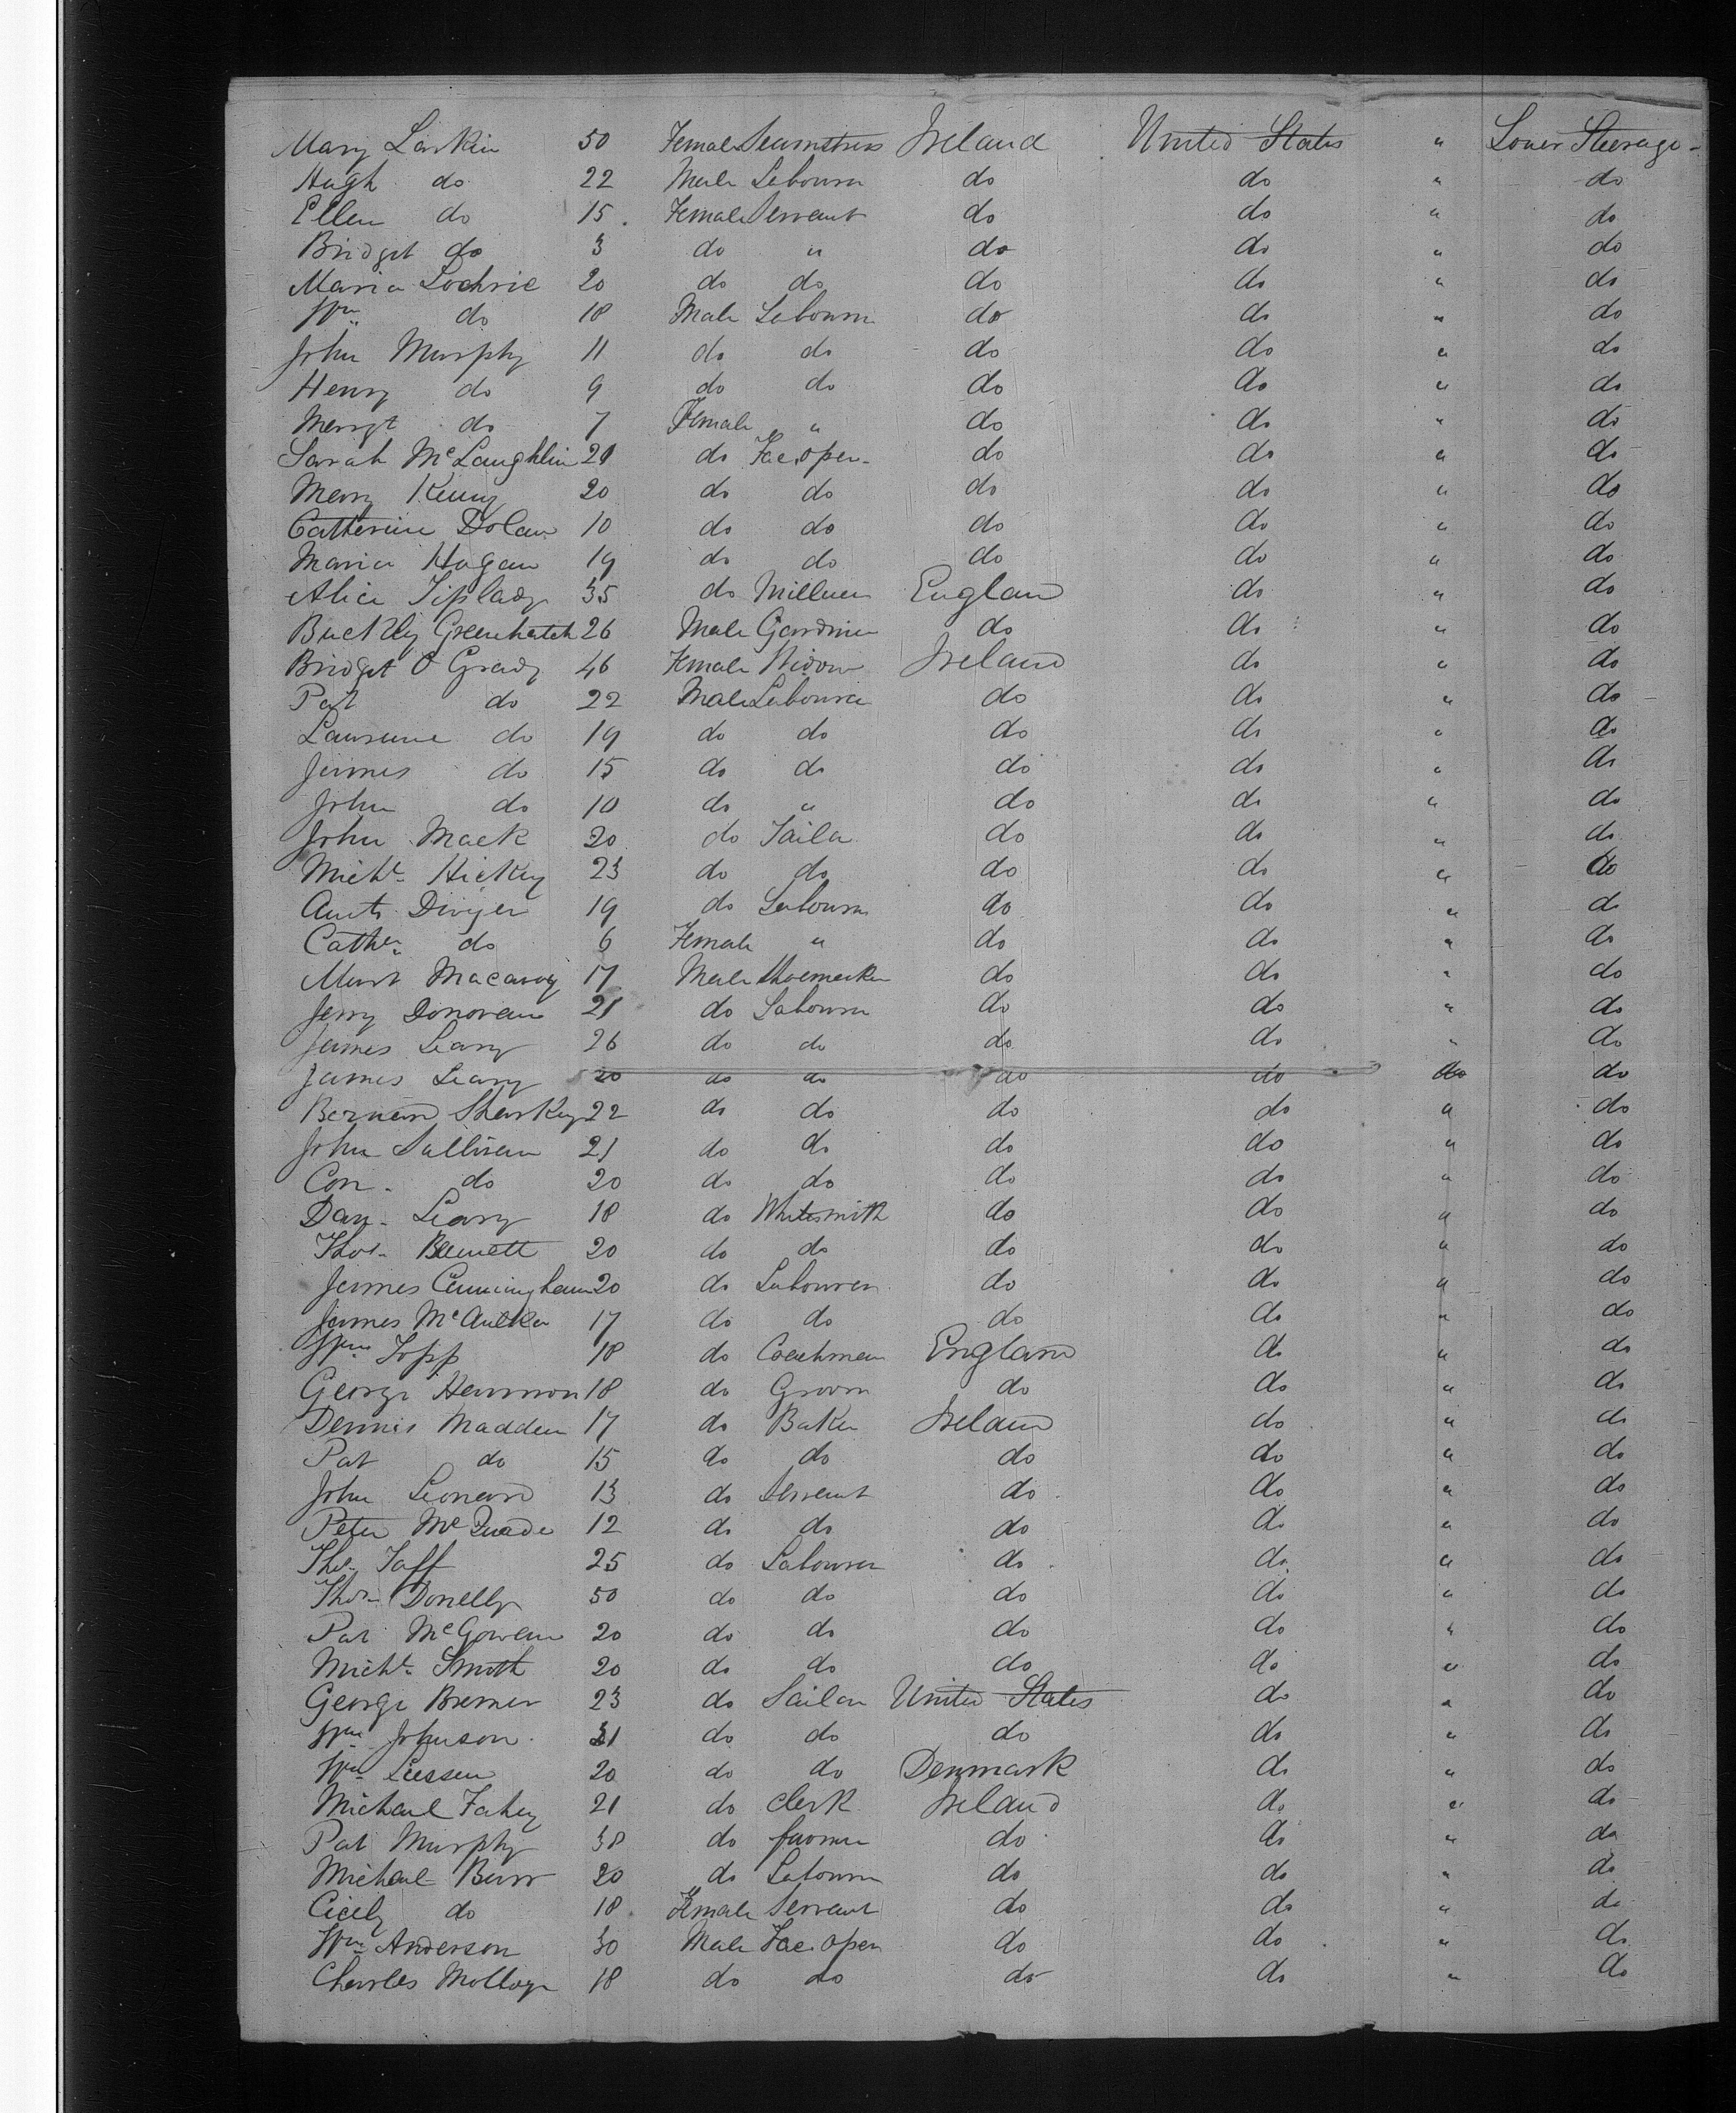 Mary Larkin 50 Female Seamstress Ireland United States " Lower Steerage
Hugh do 22 Male Labourer do do " do
Ellen do 15 Female Servant do do " do
Bridget do 3 do " do do " do
Maria Lochrie 20 do do do do " do
Wm do 18 Male Labourer do do " do
John Murphy 11 do do do do " do
Henry do 9 do do do do " do
Margt do 7 Female " do do " do
Sarah McLaughlin 21 do Fac. oper. do do " do
Mary Kenny 20 do do do do " do
Catherine Dolan 10 do do do do " do
Maria Hagan 19 do do do do " do
Alice Tiplady 35 do Milliner England do " do
Buckley Greenhatch 26 Male Gardiner do do " do
Bridget O Grady 46 Female Widow Ireland do " do
Pat do 22 Male Labourer do do " do
Laurence do 19 do do do do " do
James do 15 do do do do " do
John do 10 do " do do " do
John Mack 20 do Tailor do do " do
Michl. Hickey 23 do do do do " do
19 do Labourer do do " do
Cathn. do 6 Female " do do " do
17 Male Shoemaker do do " do
Jerry Donovan 21 do Labourer do do " do
James Leary 26 do do do do " do
James Leary 20 do do do do do do
Bernard Sharkey 22 do do do do " do
John Sullivan 21 do do do do " do
Con. do 20 do do do do " do
Dan. Leary 18 do Whitesmith do do " do
Thos. Bennett 20 do do do do " do
James Cunningham 20 do Labourer do do " do
James 17 do do do do " do
Wm Topp 18 do Coachman England do " do
George Hammon 18 do Groom do do " do
Dennis Madden 17 do Baker Ireland do " do
Pat do 15 do do do do " do
John Leonard 13 do Servant do do " do
Peter McQuade 12 do do do do " do
Thos. Taff 25 do Labourer do do " do
Thos. Donelly 50 do do do do " do
Pat McGowan 20 do do do do " do
Michl. Smith 20 do do do do " do
George Bremer 23 do Sailor United States do " do
Wm Johnson 31 do do do do " do
Wm 20 do do Denmark do " do
Michael Fahey 21 do Clerk Ireland do " do
Pat Murphy 38 do farmer do do " do
Michael Burr 20 do Labourer do do " do
Cicily do 18 Female Servant do do " do
Wm Anderson 30 Male Fac. oper do do " do
Charles Molloy 18 do do do do " do